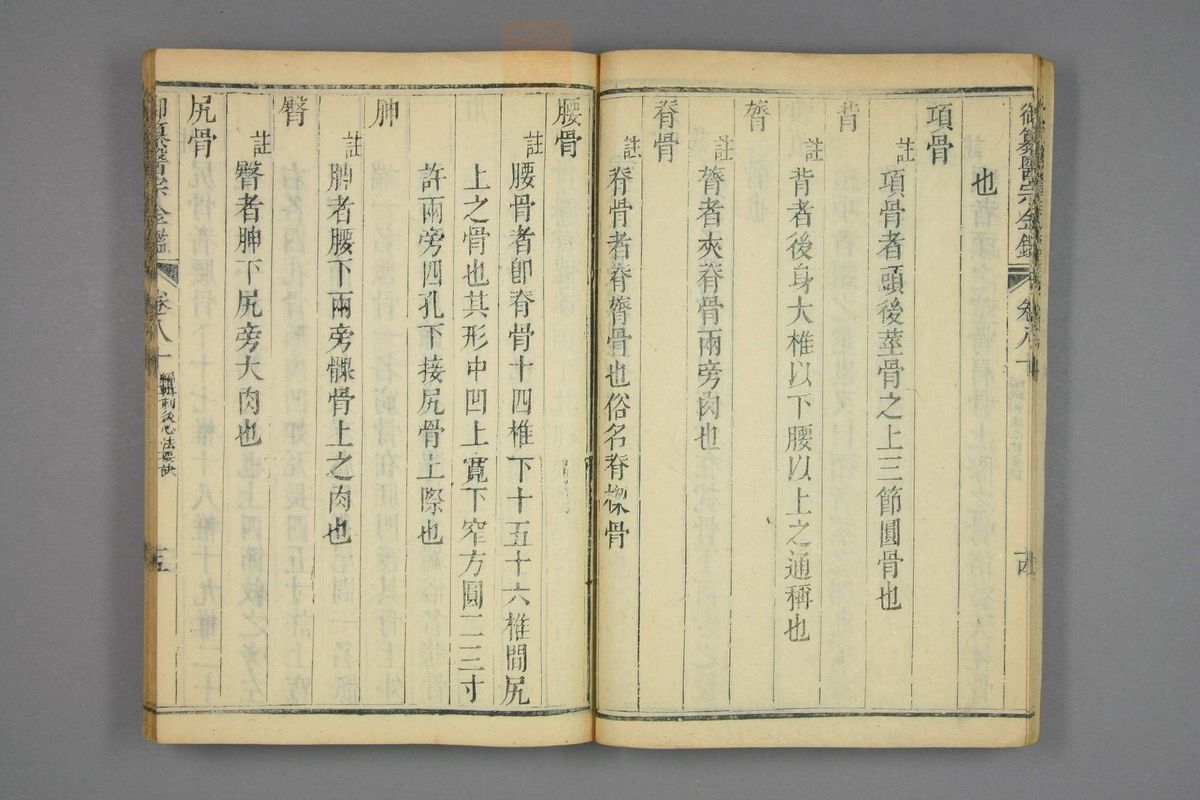 御纂醫宗金鑑
卷八十
也
項骨
註
項骨者頭後莖骨之上三節圓骨也
背
註
背者後身大椎以下腰以上之通稱也
膂
註
膂者夾脊骨兩旁肉也
脊骨
註
脊骨者脊膂骨也俗名脊樑骨
腰骨
註
腰骨者卽脊骨十四椎下十五十六椎間尻
上之骨也其形中凹上寬下窄方圓二三寸
許兩旁四孔下接尻骨上際也
胂
註
胂者腰下兩旁髁骨上之肉也
臀
註
臀者胂下尻旁大肉也
尻骨
御纂醫宗金鑑
卷八十
編輯刺灸心法要訣
十五